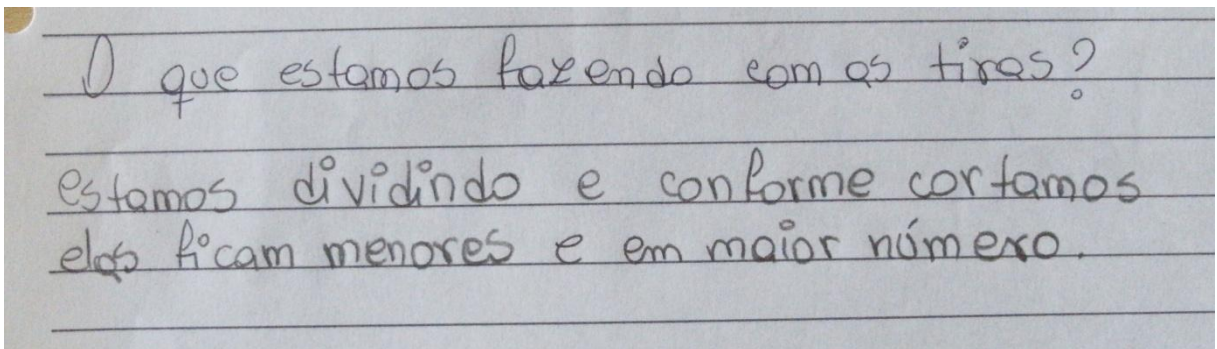 O que estamos fazendo com as tiras?
estamos dividindo e conforme cortamos
elas ficam menores e em maior número.